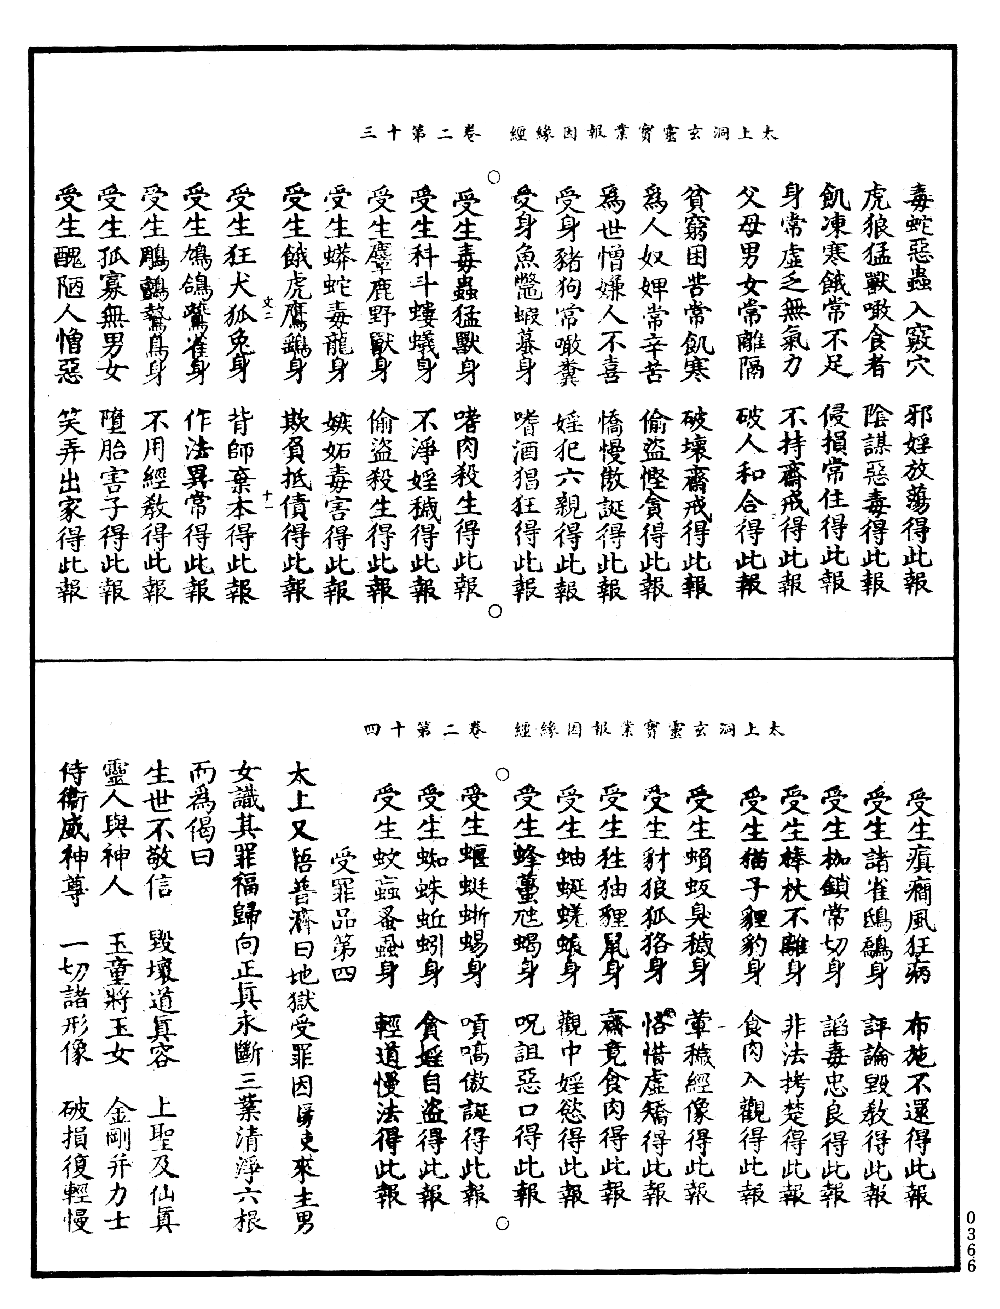 太上洞玄靈寶業報因緣經　卷二第十三
毒蛇惡蟲入竅穴　邪婬放蕩得此報
虎狼猛獸噉食者　陰謀惡毒得此報
飢凍寒餓常不足　侵損常住得此報
身常虛乏無氣力　不持齋戒得此報
父母男女常離隔　破人和合得此報
貧窮困苦常飢寒　破壞齋戒得此報
爲人奴婢常辛苦　偷盜慳貪得此報
爲世憎嫌人不喜　憍慢傲誕得此報
受身豬狗常噉糞　婬犯六親得此報
受身魚鼈蝦蟇身　嗜酒猖狂得此報
受生毒蟲猛獸身　嗜肉殺生得此報
受生科斗螻蟻身　不淨婬穢得此報
受生麞鹿野獸身　偷盜殺生得此報
受生蟒蛇毒龍身　嫉妬毒害得此報
受生餓虎鷹鷂身　欺負抵債得此報
文二　十一
受生狂犬狐兔身　背師棄本得此報
受生鴆鴿鷩雀身　作法異常得此報
受生鵰鸇鷲鳥身　不用經教得此報
受生孤寡無男女　墮胎害子得此報
受生醜陋人憎惡　笑弄出家得此報
太上洞玄靈寶業報因緣經　卷二第十四
受生癲癇風狂病　布施不還得此報
受生諸雀鴟鵂身　評論毀教得此報
受生枷鎖常切身　諂毒忠良得此報
受生棒杖不離身　非法拷楚得此報
受生猫子貍豹身　食肉入觀得此報
受生蝜蚑臭穢身　葷穢經像得此報
受生豺狼狐狢身　悋惜虛矯得此報
受生狌狖貍鼠身　齋竟食肉得此報
受生蚰蜒蜣蜋身　觀中婬慾得此報
受生蜂蠆虺蝎身　呪詛惡口得此報
受生蝘蜓蜥蜴身　嗔嗃傲誕得此報
受生蜘蛛蚯蚓身　貪婬自盜得此報
受生蚊蝱蚤蝨身　輕道慢法得此報
受罪品第四
太上又語普濟曰地獄受罪因當來主男
女識其罪福歸向正眞永斷三業清淨六根
而爲偈曰
生世不敬信　毀壞道眞容　上聖及仙眞
靈人與神人　玉童將玉女　金剛并力士
侍衛威神尊　一切諸形像　破損復輕慢
0366